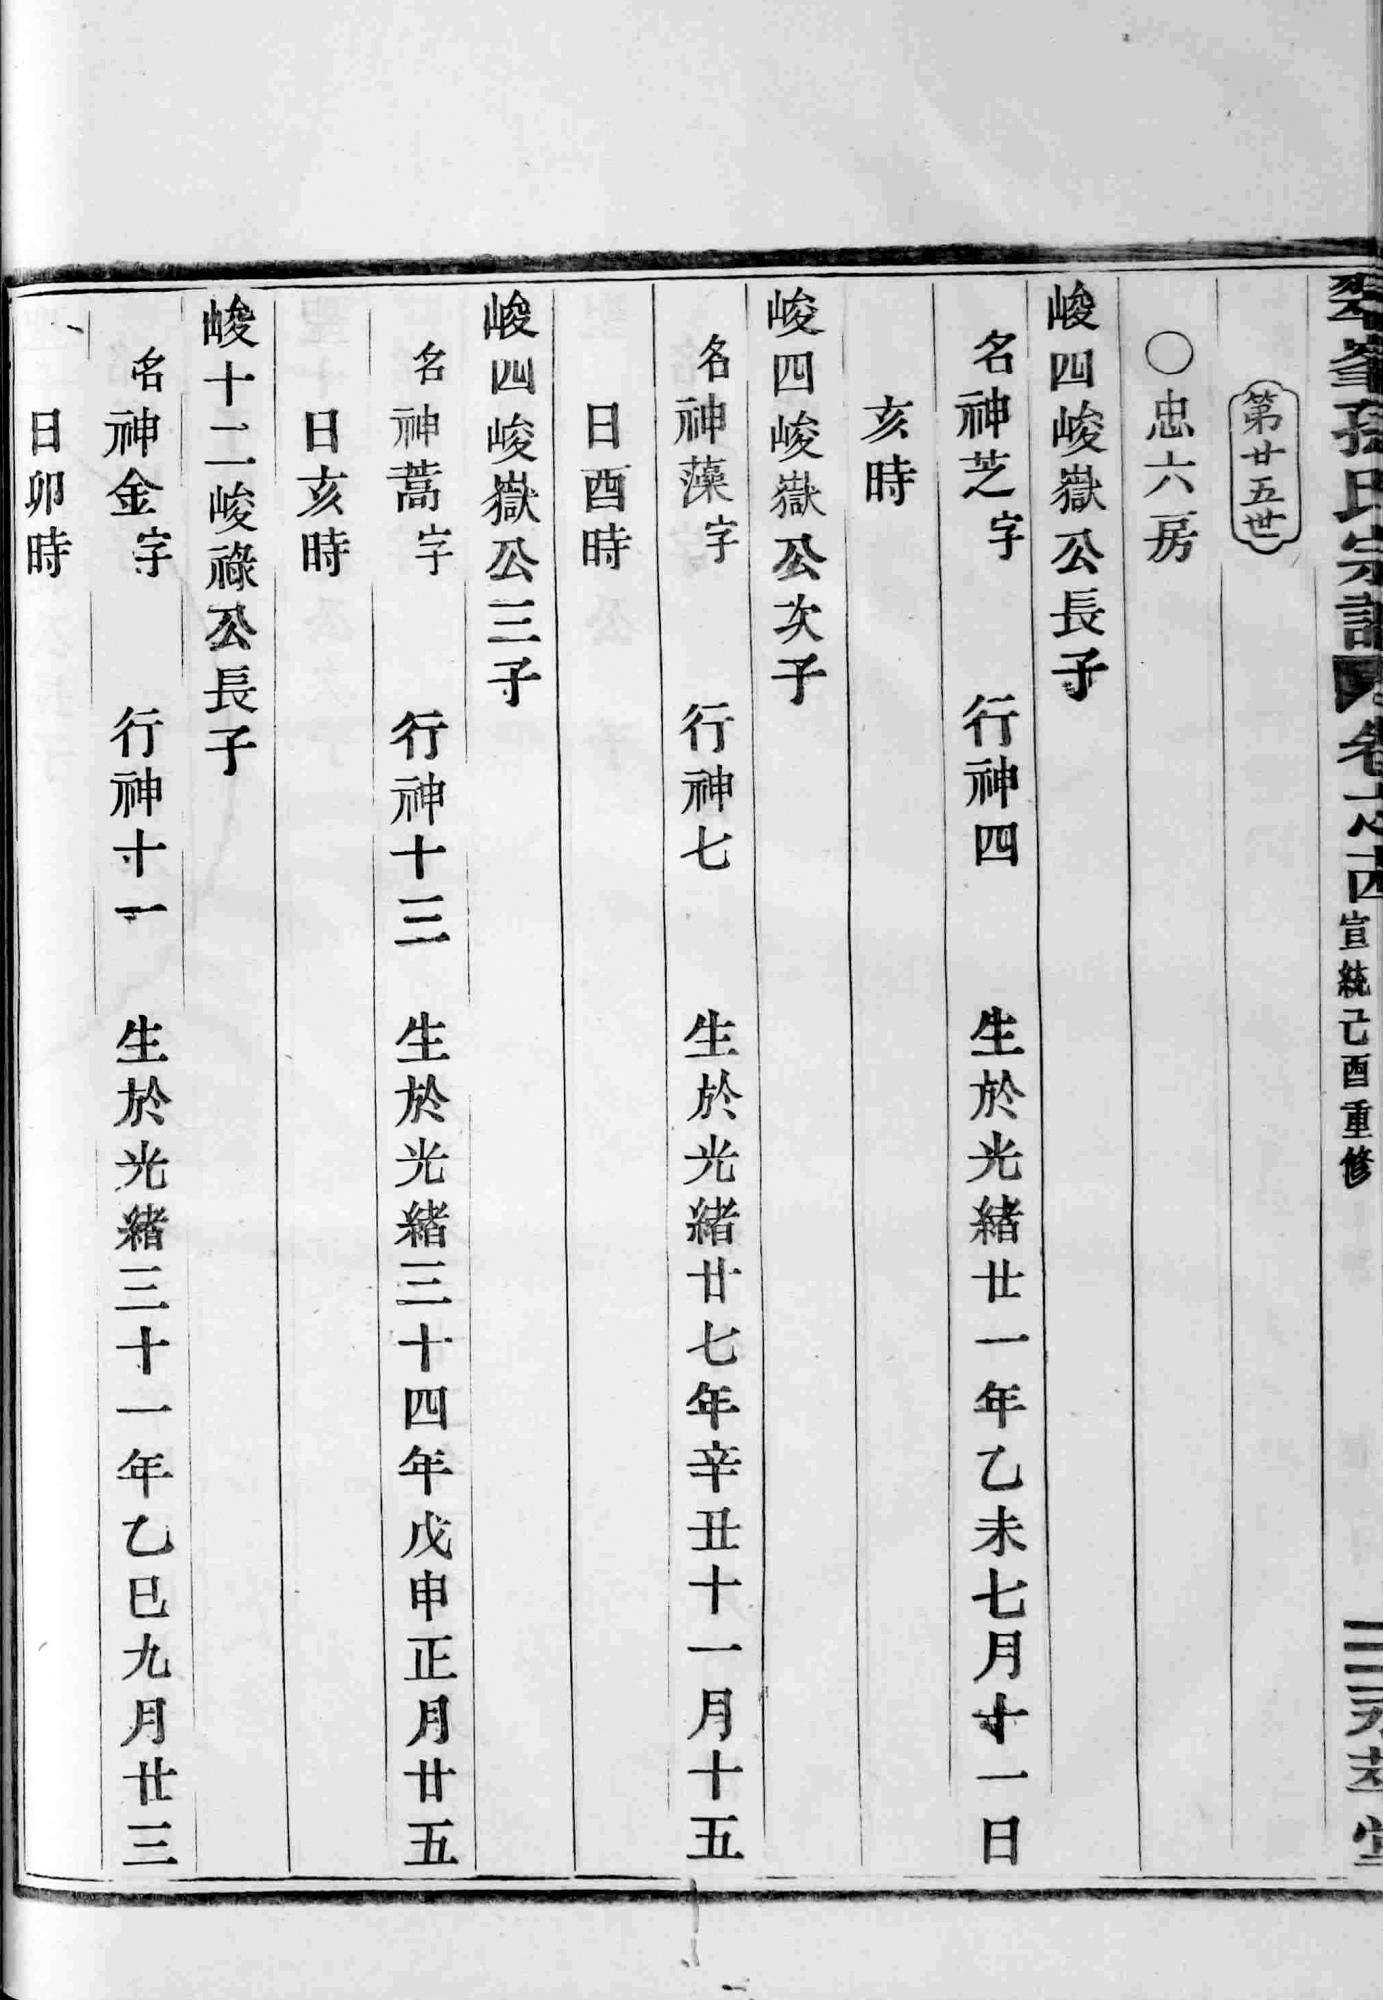 孫氏宗譜
卷之
宣統己酉重修
堂
第廿五世
〇忠六房
峻四峻嶽公長子
名神芝字 行神四 生於光緒廿一年乙未七月十一日
亥時
峻四峻嶽公次子
名神藻字 行神七 生於光緒廿七年辛丑十一月十五
日酉時
峻四峻嶽公三子
名神蒿字 行神十三 生於光緒三十四年戊申正月廿五
日亥時
峻十二峻祿公長子
名神金字 行神十一 生於光緒三十一年乙巳九月廿三
日卯時